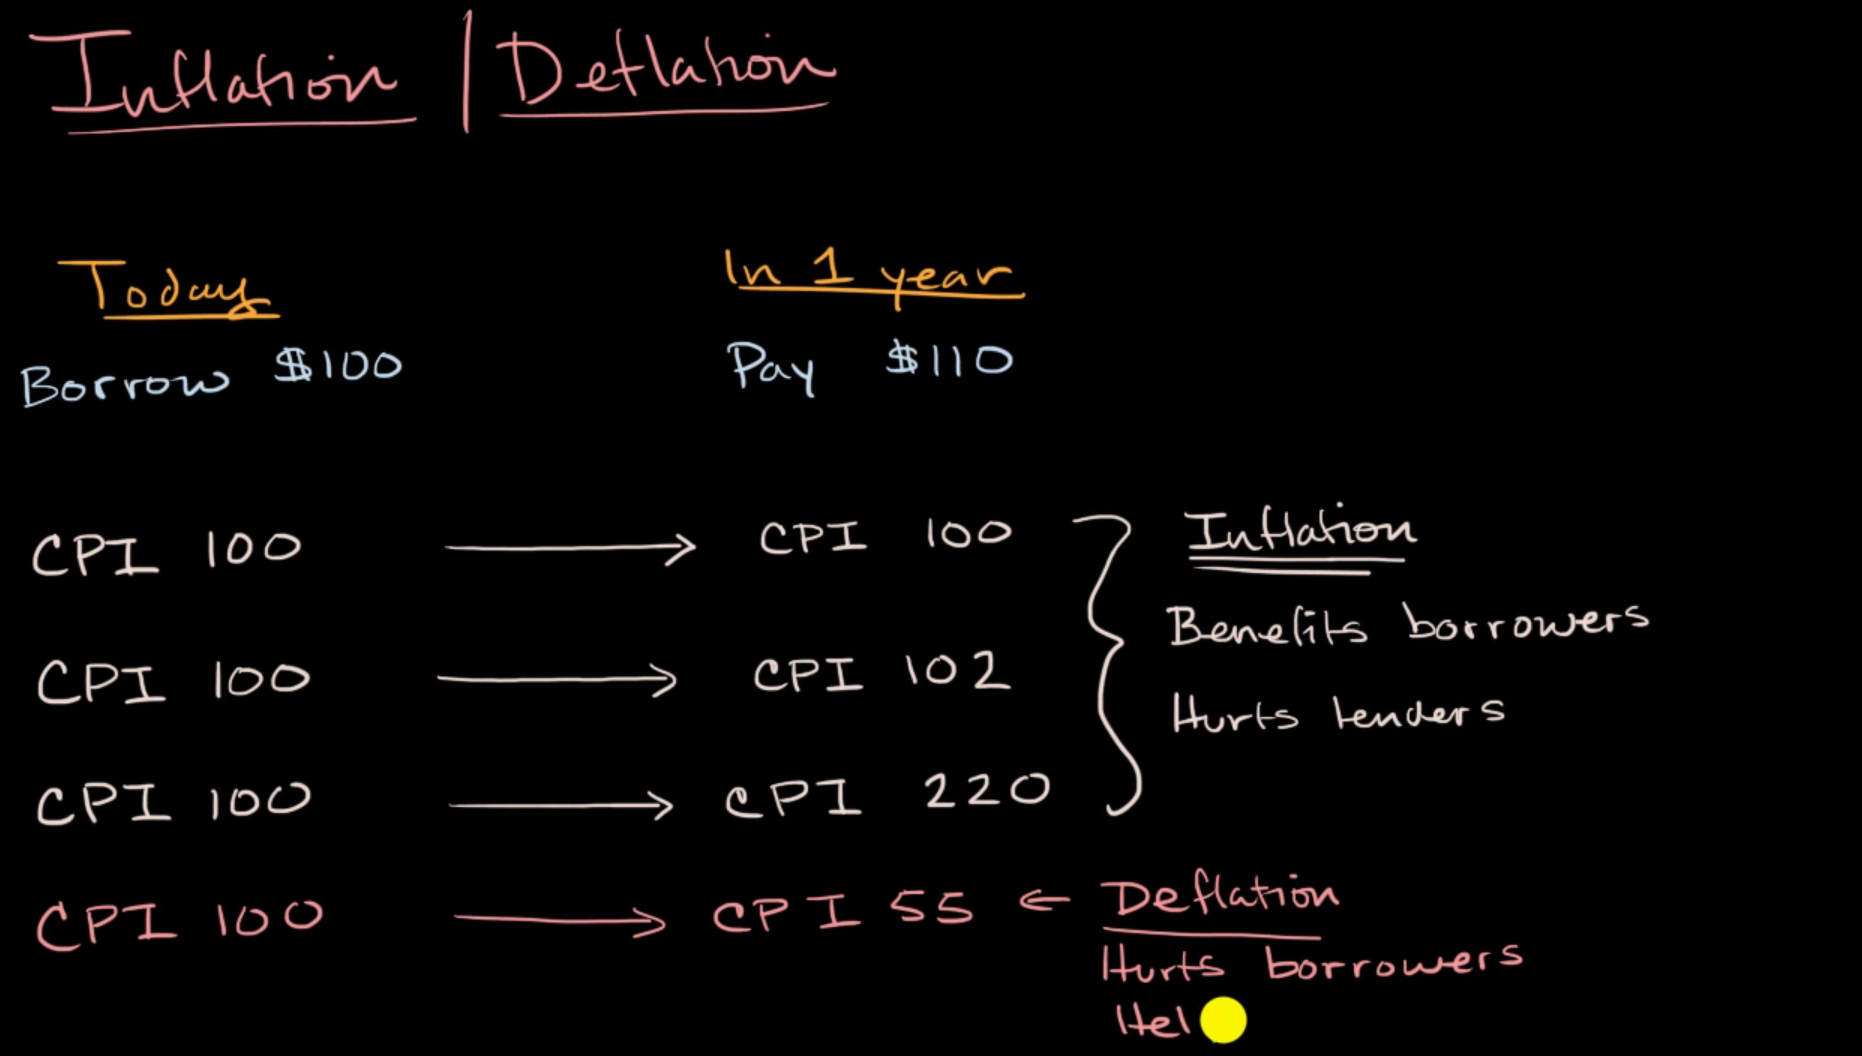 Inflation | Deflation
Today
In 1 year
Borrow $100
Pay $110
CPI 100 → CPI 100
CPI 100 → CPI 102
CPI 100 → CPI 220
Inflation
Benefits borrowers
Hurts lenders
CPI 100 → CPI 55 ← Deflation
Hurts borrowers
Hel